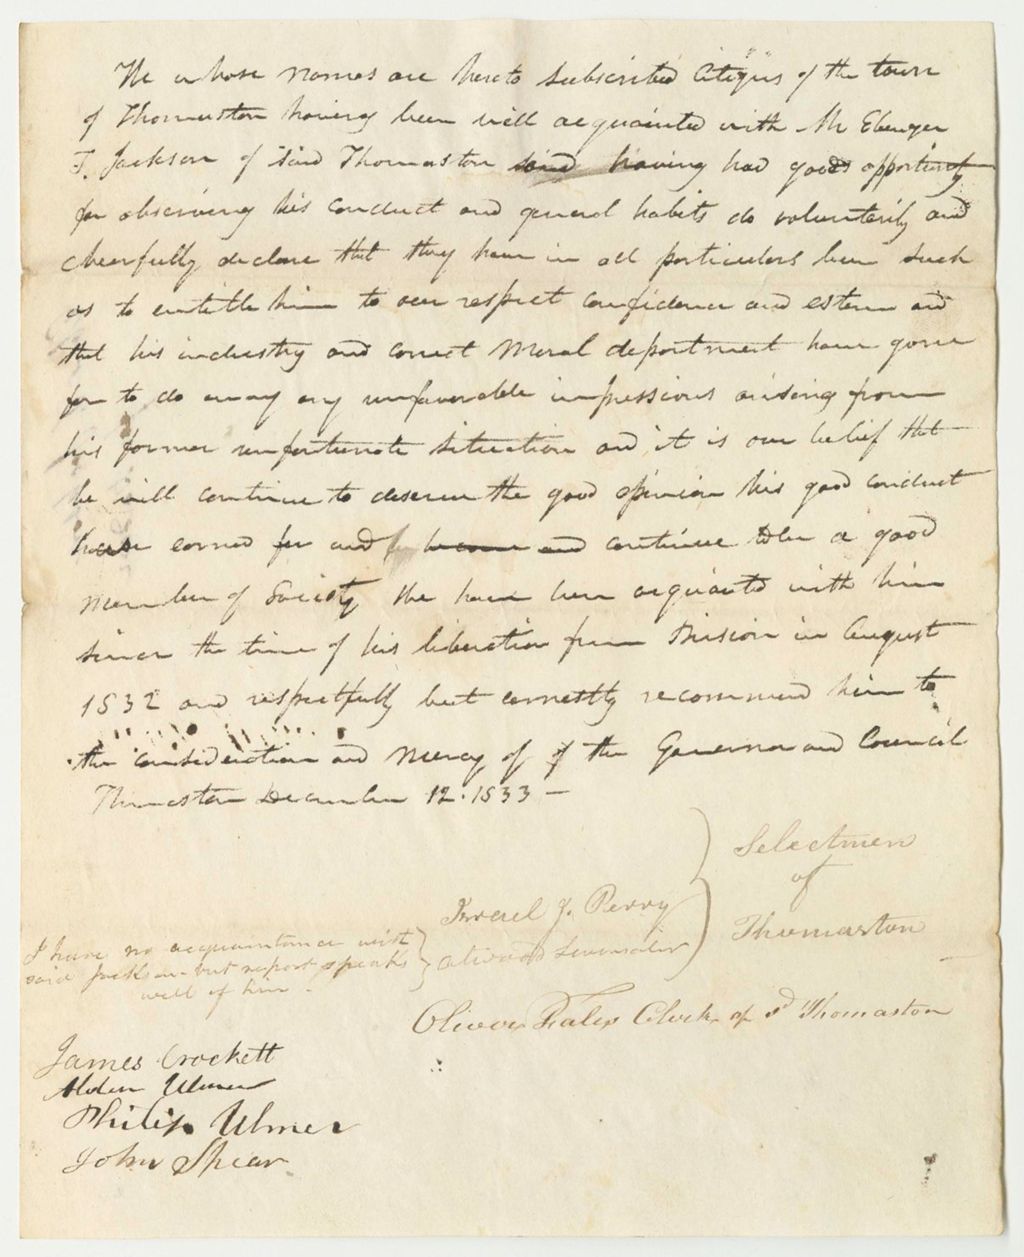 We whose names are hereto subscribed Citizens of the town
of Thomaston having been well acquainted with Mr Ebenezer
F. Jackson of said Thomaston said having had good opportunity
for observing his conduct and general habits do voluntarily and
chearfully declare that they have in all particulars been such
as to entitle him to our respect confidence and esteem and
that his industry and correct moral deportment have gone
far to do away any unfavorable impressions arising from
his former unfortunate situation and it is our belief that
he will continue to deserve the good opinion his good conduct
have earned for and become and continue to be a good
member of Society We have been acquainted with him
since the time of his liberation from Prision in August
1832 and respectfully but earnestly recommend him to
the consideration and mercy of of the Governor and Council
Thomaston December 12. 1833 —
Selectmen
of
Thomaston
Israel J. Perry
Atwood Levensaler
I have no acquaintance with
said Jackson but report speaks
well of him.
Oliver Fales Clerk of sd Thomaston
James Crockett
Alden Ulmer
Philip Ulmer
John Spear